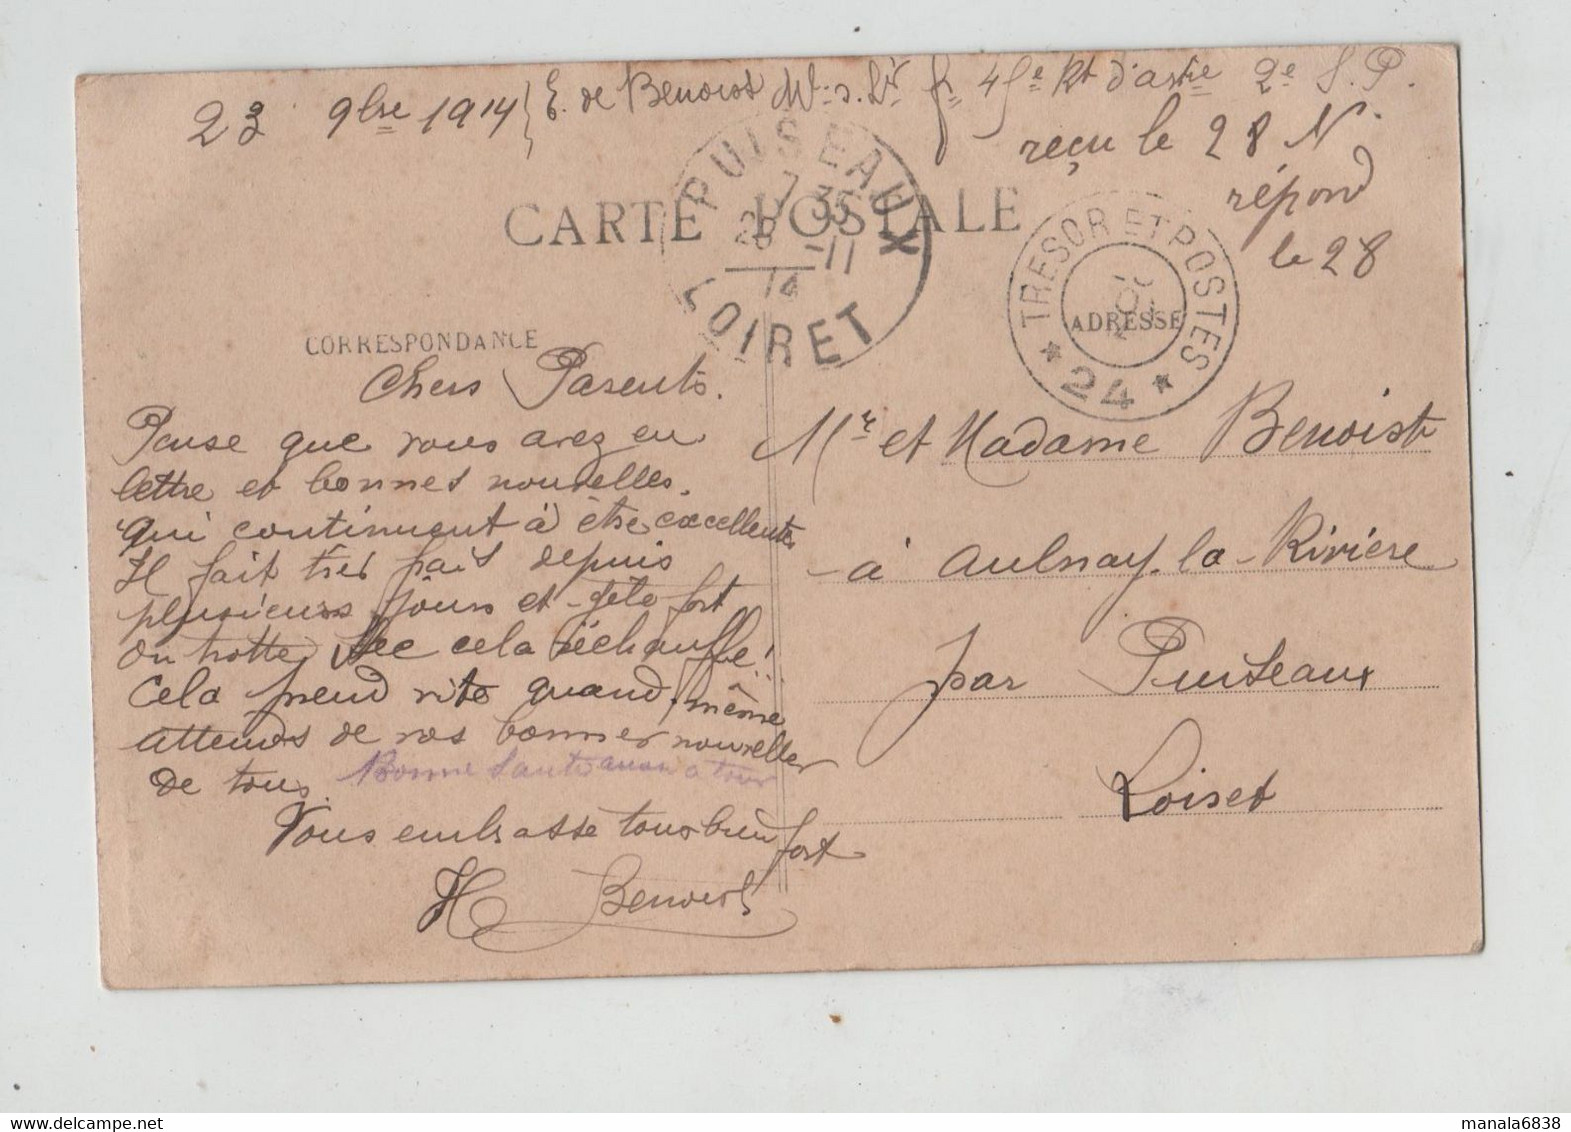 23 9bre 1914 E. de Benoist 45e Rt d'artie 2e S.P.
reçu le 28 N.
répond
le 28
CARTE POSTALE
PUISEAUX
7 35
28 -11
14
LOIRET
TRESOR ET POSTES
* 24 *
CORRESPONDANCE
ADRESSE
Chers Parents.
Pense que vous avez eu
lettre et bonnes nouvelles.
qui continuent à être excellentes
Il fait très froid depuis
plusieurs jours et gèle fort
on trotte, avec cela réchauffe!
Cela prend vite quand même
attends de vos bonnes nouvelles
de tous. Bonne Santé à tous
Vous embrasse tous bien fort
H Benoist
Mr et Madame Benoist
à Aulnay-la-Rivière
par Puiseaux
Loiret
manala6838